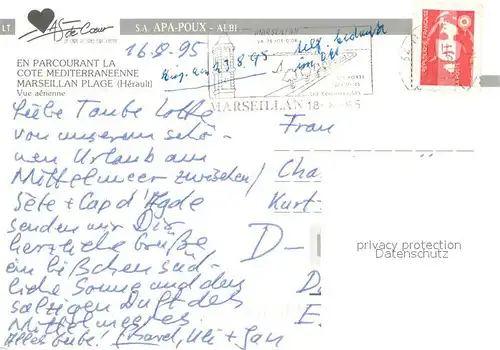 LT
AS de Cœur
S.A. APA-POUX - ALBI
16.8.95
EN PARCOURANT LA
COTE MEDITERRANEENNE
MARSEILLAN PLAGE (Hérault)
Vue aérienne
MARSEILLAN
23.8.95
MARSEILLAN 18-8-95
Liebe Tante Lotte
von unserem schö-
nen Urlaub am
Mittelmeer zwischen
Sète + Cap d'Agde
senden wir Dir
herzliche Grüße,
ein bißchen süd-
liche Sonne und den
salzigen Duft des
Mittelmeeres.
Alles Liebe! Uli + Jan
Frau
Cha
Kurt-
D-
privacy protection
Datenschutz
D
E